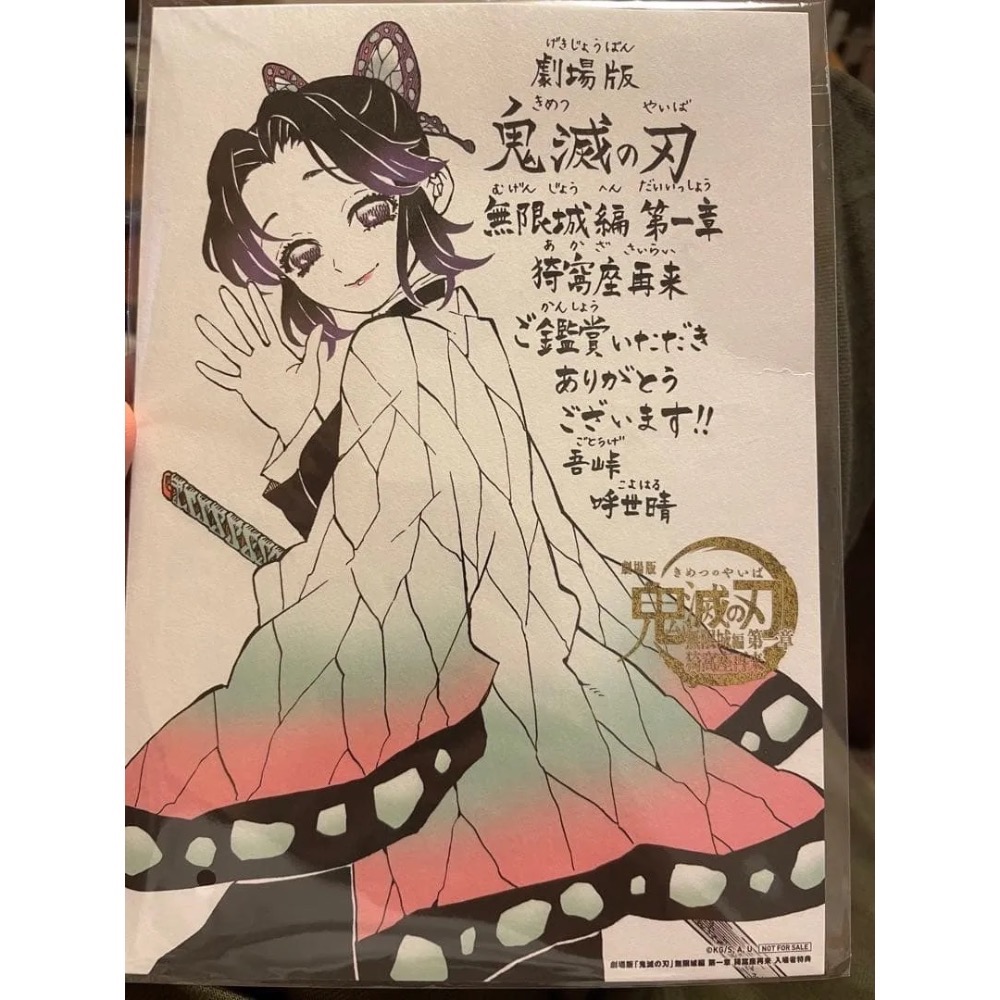 げきじょうばん
劇場版
きめつ やいば
鬼滅の刃
むげん じょう へん だいいっしょう
無限城編 第一章
あかざ さいらい
猗窩座再来
かんしょう
ご鑑賞いただき
ありがとう
ございます!!
ごとうげ
吾峠
こよはる
呼世晴
劇場版 きめつのやいば
鬼滅の刃
無限城編 第一章
猗窩座再来
©KG/S, A, U. NOT FOR SALE
劇場版「鬼滅の刃」無限城編 第一章 猗窩座再来 入場者特典